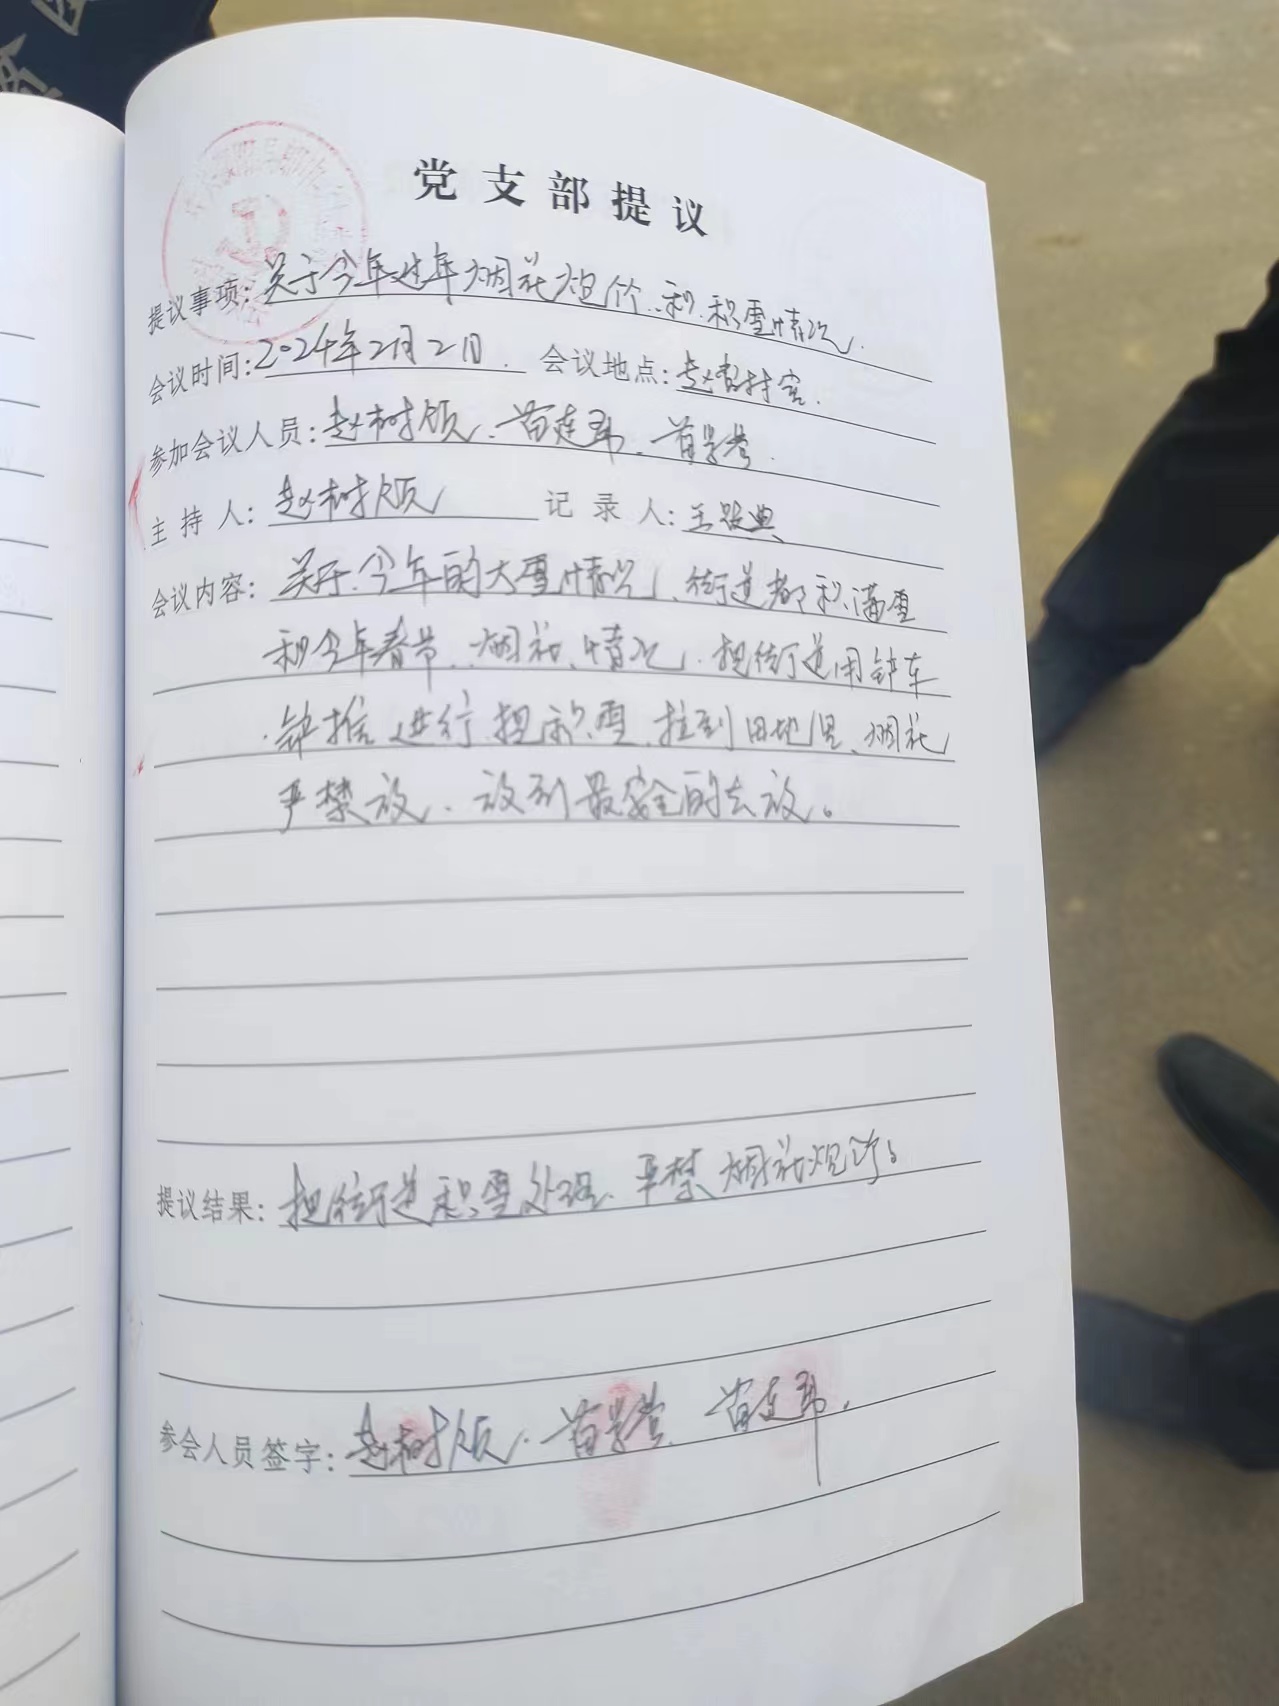 党支部提议
提议事项:关于今年过年烟花炮竹、和、积雪情况.
会议时间:2024年2月2日. 会议地点:赵
参加会议人员:赵树颀、苗连
主持人:赵树颀 记录人:王
会议内容:关于今年的大雪情况、街道都积满雪
和今年春节、烟花、情况.把街道用铲车
铲 进行.把积雪.拉到田地里、烟花
严禁放、放到最安全的去放。
提议结果:把街道积雪处理、严禁烟花炮竹。
参会人员签字:赵树颀.苗 苗连